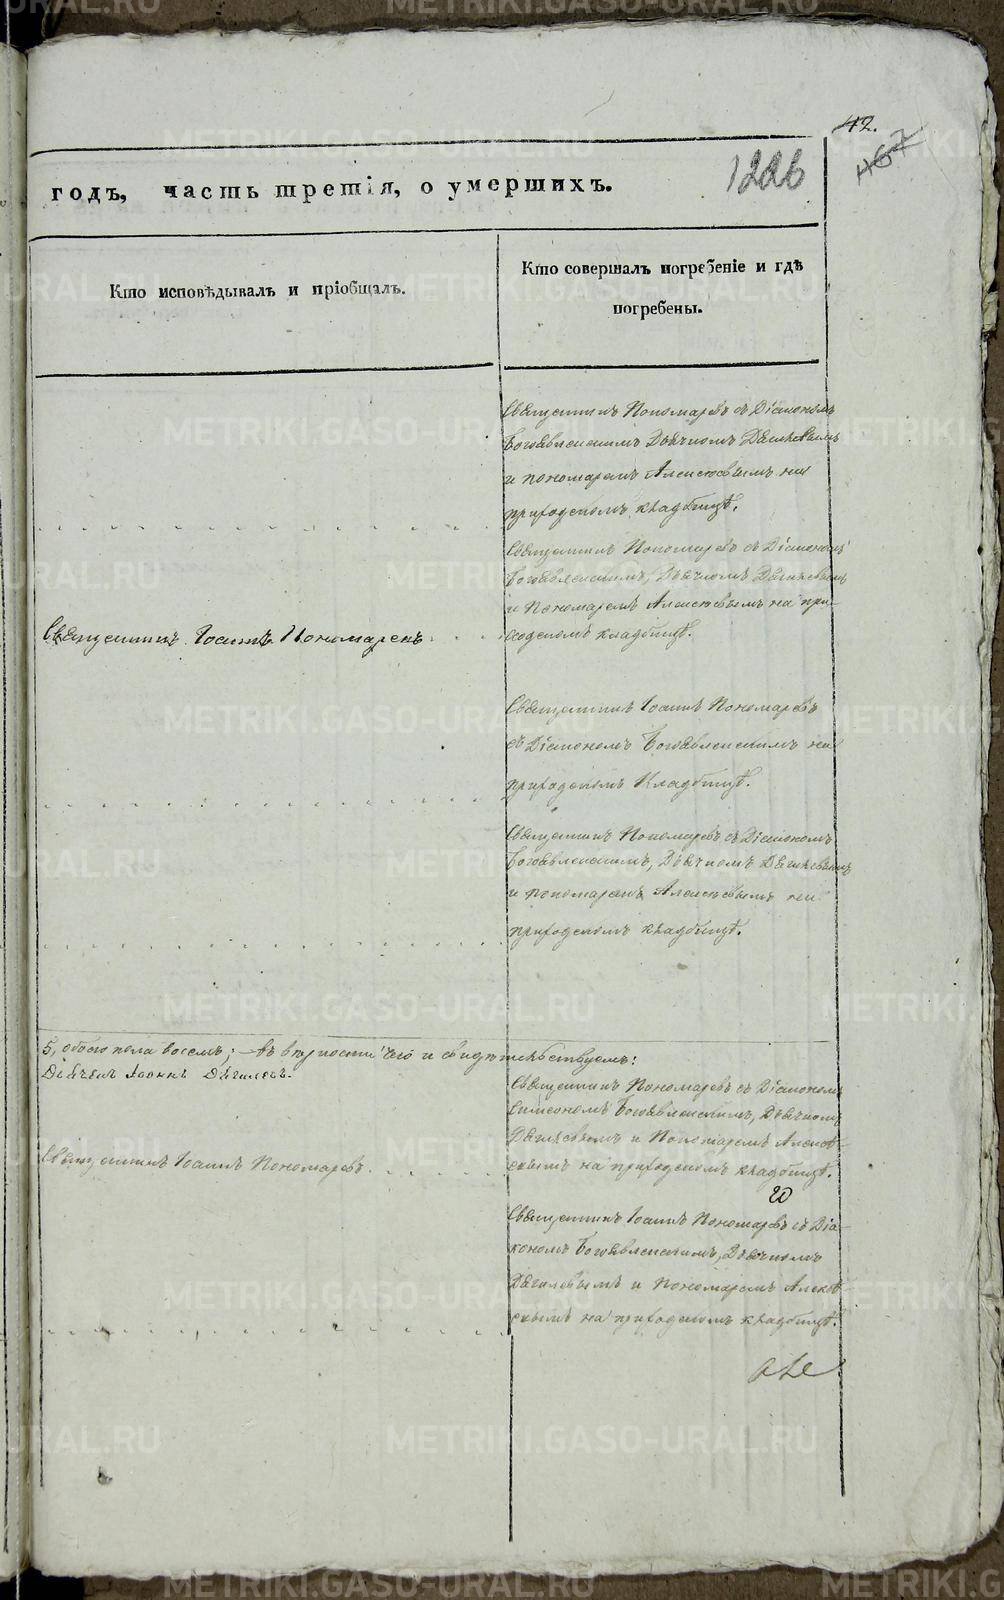 42.
467
1226
годъ, часть третія, о умершихъ.
Кто исповѣдывалъ и пріобщалъ.
Кто совершалъ погребеніе и гдѣ
погребены.
Священникъ Пономаревъ съ Діакономъ
Богоявленскимъ Дьячкомъ
и пономаремъ Алексѣевымъ на
приходскомъ кладбищѣ.
Священникъ Пономаревъ съ Діакономъ
Богоявленскимъ, Дьячкомъ
и Пономаремъ Алексѣевымъ на при-
ходскомъ кладбищѣ.
Священникъ Іоаннъ Пономаревъ
Священникъ Іоаннъ Пономаревъ
съ Діакономъ Богоявленскимъ на
приходскомъ Кладбищѣ.
Священникъ Пономаревъ съ Діакономъ
Богоявленскимъ, Дьячкомъ
и пономаремъ Алексѣевымъ на
приходскомъ кладбищѣ.
5, обоего пола восемь; – въ вѣрности чего и свидѣтельствуемъ:
Дьячекъ Іоаннъ
Священникъ Пономаревъ съ Діакономъ
Симеономъ Богоявленскимъ, Дьячкомъ
и Пономаремъ Алексѣ-
евымъ на приходскомъ кладбищѣ.
Священникъ Іоаннъ Пономаревъ
Священникъ Іоаннъ Пономаревъ съ Діа-
кономъ Богоявленскимъ, Дьячкомъ
и Пономаремъ Алексѣ-
евымъ на приходскомъ кладбищѣ.
METRIKI.GASO-URAL.RU